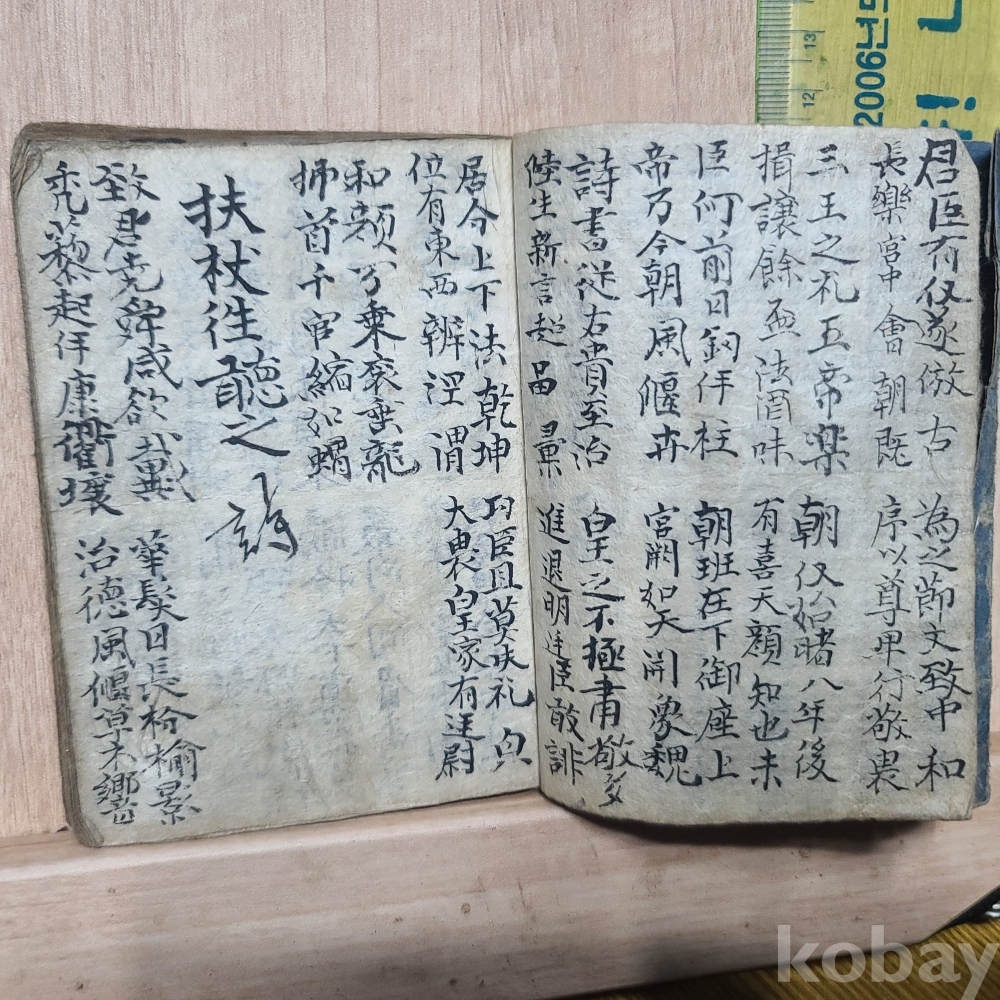 君臣有仪遂倣古 為之節文致中和
長樂宮中會朝既 序以尊卑行敬畏
三王之礼五帝樂 朝仪始睹八年後
揖讓餘盃法酒味 有喜天顔知也未
臣何前日釼佯柱 朝班在下御座上
帝乃今朝風偃卉 宮闕如天開象魏
詩書從古貴至治 皇王之不極肅敬
陸生新言趍 進退明廷臣敢誹
居今上下法乾坤 臣且莫昧礼
位有東西辨涇渭 大農皇家有廷尉
和顔兮乘衮垂龍
拂首千官縮如蝟
扶杖往聽之 詩
致君堯舜咸欲戴 華髮日長枌榆景
黎起佯康衢壤 治德風偃草木鄉音
2006년도
13
12
kobay